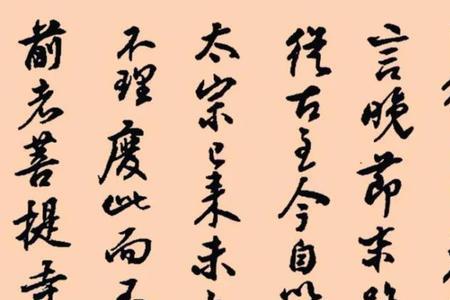 言晚节末路
从古至今自
太宗已来未
不理废此而
前者菩提寺